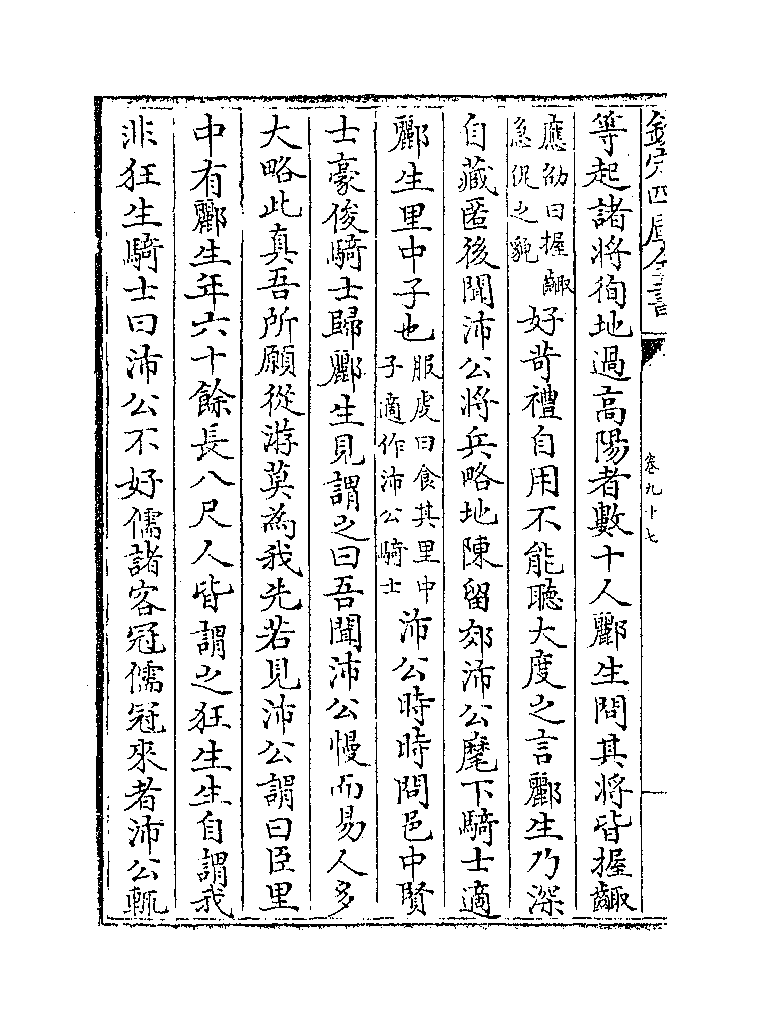 欽定四庫全書
卷九十七
等起諸將徇地過高陽者數十人酈生問其將皆握齱
應劭曰握齱
急促之貌
好苛禮自用不能聽大度之言酈生乃深
自藏匿後聞沛公將兵略地陳留郊沛公麾下騎士適
酈生里中子也
服虔曰食其里中
子適作沛公騎士
沛公時時問邑中賢
士豪俊騎士歸酈生見謂之曰吾聞沛公慢而易人多
大略此真吾所願從游莫為我先若見沛公謂曰臣里
中有酈生年六十餘長八尺人皆謂之狂生生自謂我
非狂生騎士曰沛公不好儒諸客冠儒冠來者沛公輒